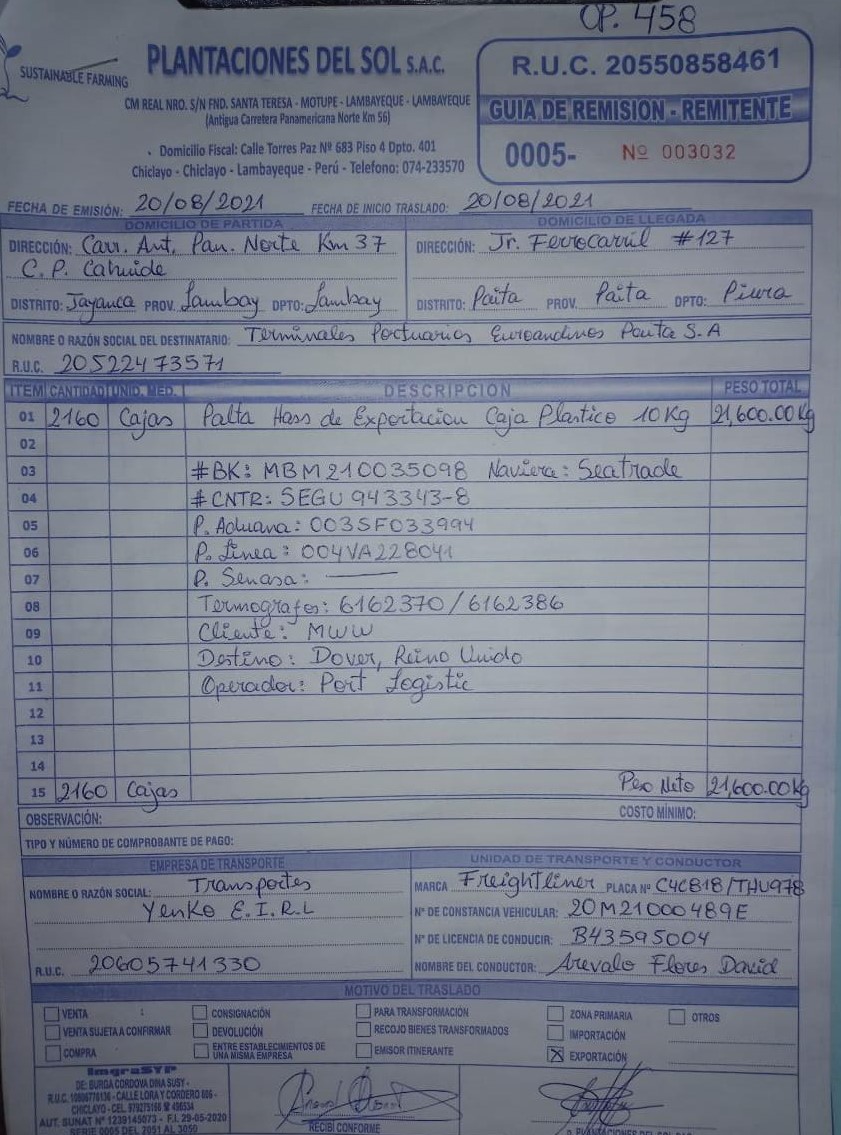 OP. 458
SUSTAINABLE FARMING
PLANTACIONES DEL SOL S.A.C.
CM REAL NRO. S/N FND. SANTA TERESA - MOTUPE - LAMBAYEQUE - LAMBAYEQUE
(Antigua Carretera Panamericana Norte Km 56)
Domicilio Fiscal: Calle Torres Paz Nº 683 Piso 4 Dpto. 401
Chiclayo - Chiclayo - Lambayeque - Perú - Telefono: 074-233570
R.U.C. 20550858461
GUIA DE REMISION - REMITENTE
0005- Nº 003032
FECHA DE EMISIÓN: 20/08/2021 FECHA DE INICIO TRASLADO: 20/08/2021
DOMICILIO DE PARTIDA
DIRECCIÓN: Carr. Ant. Pan. Norte Km 37
C.P. Cahuide
DISTRITO: Jayanca PROV. Lambay DPTO: Lambay
DOMICILIO DE LLEGADA
DIRECCIÓN: Jr. Ferrocarril #127
DISTRITO: Paita PROV. Paita DPTO: Piura
NOMBRE O RAZÓN SOCIAL DEL DESTINATARIO: Terminales Portuarios Euroandinos Paita S.A
R.U.C. 20522473571
ITEM CANTIDAD UNID. MED. DESCRIPCION PESO TOTAL
01 2160 Cajas Palta Hass de Exportacion Caja Plastico 10Kg 21,600.00Kg
02
03 #BK: MBM210035098 Naviera: Seatrade
04 #CNTR: SEGU 943343-8
05 P. Aduana: 003SF033994
06 P. Linea: 004VA228041
07 P. Senasa:
08 Termografos: 6162370 / 6162386
09 Cliente: MWW
10 Destino: Dover, Reino Unido
11 Operador: Port Logistic
12
13
14
15 2160 Cajas Peso Neto 21,600.00Kg
OBSERVACIÓN: COSTO MÍNIMO:
TIPO Y NÚMERO DE COMPROBANTE DE PAGO:
EMPRESA DE TRANSPORTE
NOMBRE O RAZÓN SOCIAL: Transportes
Yenko E.I.R.L
R.U.C. 20605741330
UNIDAD DE TRANSPORTE Y CONDUCTOR
MARCA Freightliner PLACA Nº C4C818/THU978
Nº DE CONSTANCIA VEHICULAR: 20M21000489E
Nº DE LICENCIA DE CONDUCIR: B43595004
NOMBRE DEL CONDUCTOR: Arevalo Flores David
MOTIVO DEL TRASLADO
VENTA CONSIGNACIÓN PARA TRANSFORMACIÓN ZONA PRIMARIA OTROS
VENTA SUJETA A CONFIRMAR DEVOLUCIÓN RECOJO BIENES TRANSFORMADOS IMPORTACIÓN
COMPRA ENTRE ESTABLECIMIENTOS DE UNA MISMA EMPRESA EMISOR ITINERANTE X EXPORTACIÓN
ImgraSYP
DE: BURGA CORDOVA DINA SUSY -
CALLE LORA Y CORDERO 606 -
AUT. SUNAT Nº 1239145073 - F.I. 29-05-2020
SERIE 0005 DEL 2051 AL 3050
RECIBI CONFORME